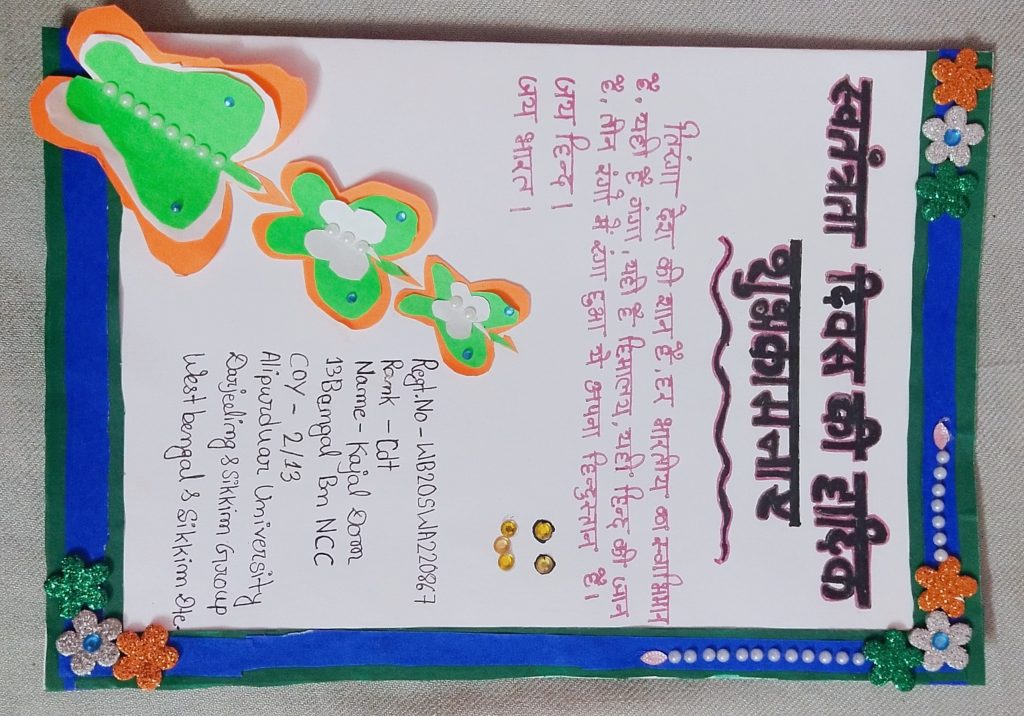 स्वतंत्रता दिवस की हार्दिक
शुभकामनाए
तिरंगा देश की शान है, हर भारतीय का स्वाभिमान
है, यही है गंगा, यही है हिमालय, यही हिन्द की जान
है, तीन रंगो में रंगा हुआ ये अपना हिन्दुस्तान है।
जय हिन्द।
जय भारत।
Regt.No-WB20SWA220867
Rank - Cdt
Name - Kajal Doom
13 Bangal Bn NCC
COY - 2/13
Alipurduar University
Darjeding & Sikkim Group
West bengal & Sikkim Dte